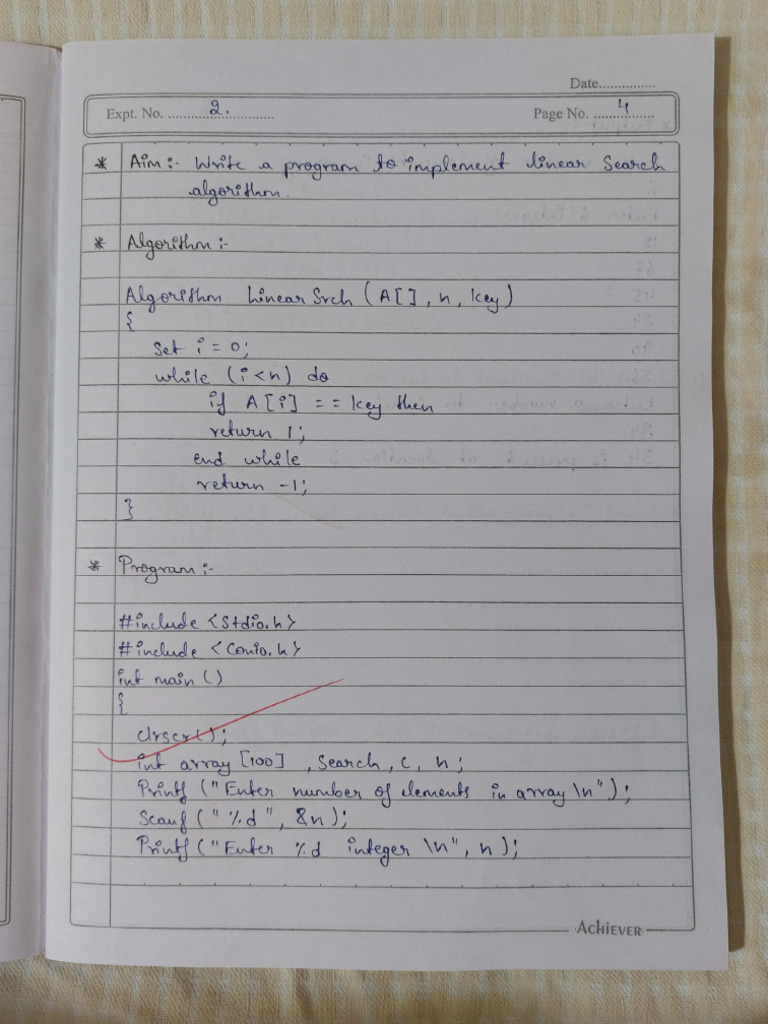 Date...............
Expt. No. ...........2.............
Page No. .......4.........
* Aim :- Write a program to implement linear Search
algorithm.
* Algorithm :-
Algorithm LinearSrch (A[], n, key)
{
Set i = 0;
while (i<n) do
if A[i] == key then
return 1;
end while
return -1;
}
* Program :-
#include <Stdio.h>
#include <Conio.h>
int main ()
{
clrscr();
int array [100] , Search , c, n ;
Printf ("Enter number of elements in array \n");
Scanf ("%d", &n);
Printf ("Enter %d integer \n", n);
AcHiEVER